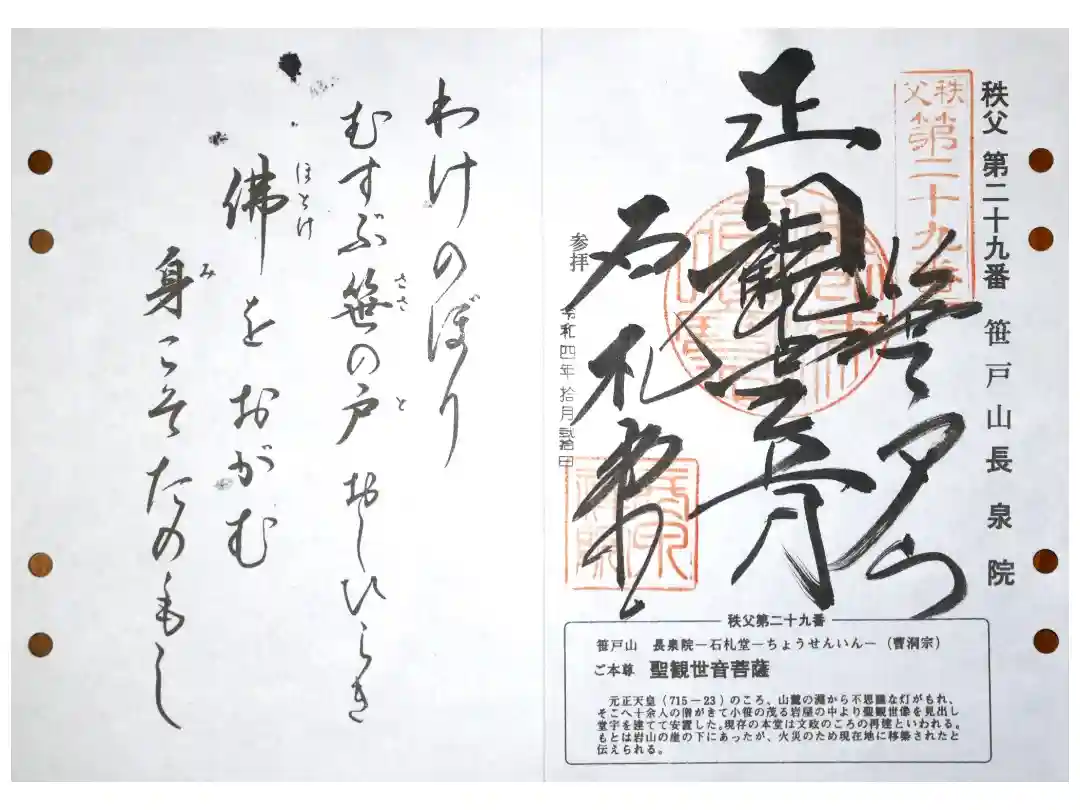 秩父 第二十九番 笹戸山長泉院
秩父
第二十九番
笹戸山
正観世音
石札堂
参拝
令和四年 拾月
秩父第二十九番
笹戸山 長泉院―石札堂―ちょうせんいん―(曹洞宗)
ご本尊 聖観世音菩薩
元正天皇(715―23)のころ、山麓の淵から不思議な灯がもれ、
そこへ十余人の僧がきて小笹の茂る岩屋の中より聖観世像を見出し
堂宇を建てて安置した。現存の本堂は文政のころの再建といわれる。
もとは岩山の崖の下にあったが、火災のため現在地に移築されたと
伝えられる。
わけのぼり
むすぶ笹の戸 おしひらき
ささ
と
佛をおがむ
ほとけ
身こそたのもし
み